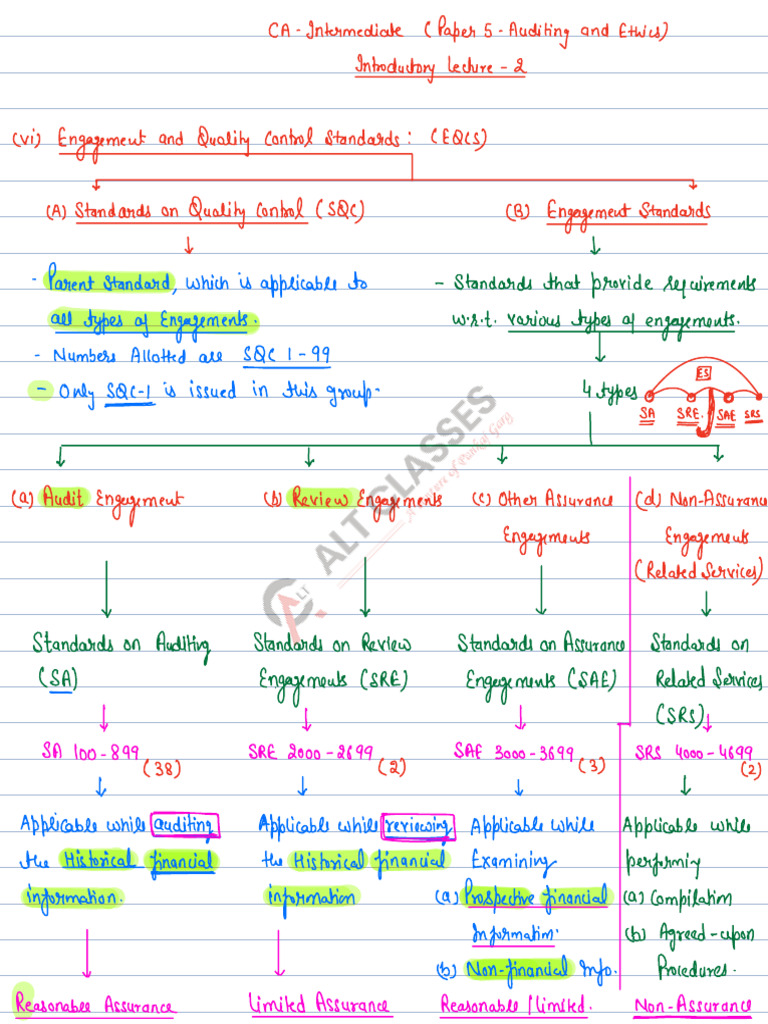 CA-Intermediate (Paper 5 - Auditing and Ethics)
Introductory Lecture - 2
(vi) Engagement and Quality Control Standards: (EQCS)
(A) Standards on Quality Control (SQC)
- Parent Standard, which is applicable to
all types of Engagements.
- Numbers Allotted are SQC 1-99
- Only SQC-1 is issued in this group.
(B) Engagement Standards
- Standards that provide requirements
w.r.t. various types of engagements.
4 types
ES
SA SRE. SAE SRS
(a) Audit Engagement
Standards on Auditing
(SA)
SA 100-899 (38)
Applicable while auditing
the Historical financial
information.
Reasonable Assurance
(b) Review Engagements
Standards on Review
Engagements (SRE)
SRE 2000-2699 (2)
Applicable while reviewing
the Historical financial
information
Limited Assurance
(c) Other Assurance
Engagements
Standards on Assurance
Engagements (SAE)
SAE 3000-3699 (3)
Applicable while
Examining
(a) Prospective financial
Information.
(b) Non-financial Info.
Reasonable/limited.
(d) Non-Assurance
Engagements
(Related Services)
Standards on
Related Services
(SRS)
SRS 4000-4699 (2)
Applicable while
performing
(a) Compilation
(b) Agreed-upon
Procedures.
Non-Assurance
ALT CLASSES
A Venture of Pankaj Garg
ALT